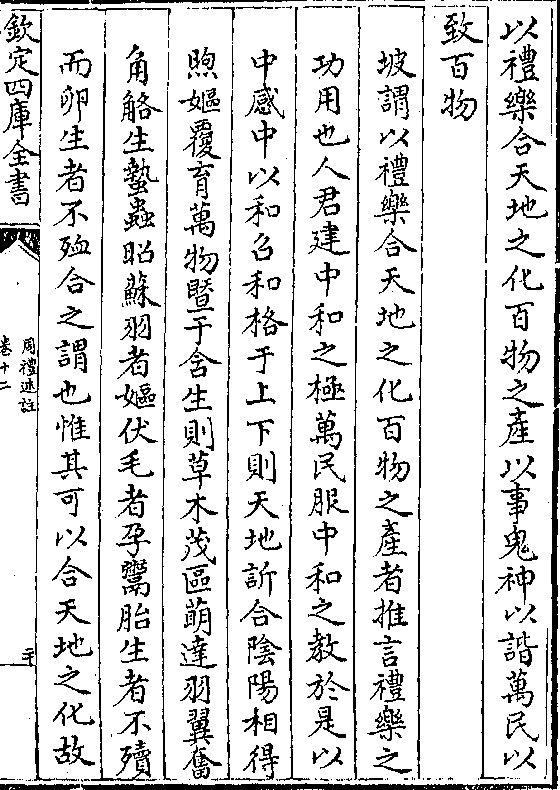 以禮樂合天地之化百物之產以事鬼神以諧萬民以
致百物
坡謂以禮樂合天地之化百物之產者推言禮樂之
功用也人君建中和之極萬民服中和之教於是以
中感中以和召和格于上下則天地訢合隂陽相得
煦嫗覆育萬物暨于含生則草木茂區萌達羽翼奮
角觡生蟄蟲昭蘇羽者嫗伏毛者孕鬻胎生者不殰
而卵生者不殈合之謂也惟其可以合天地之化故
欽定四庫全書
周禮述註
卷十二
二十